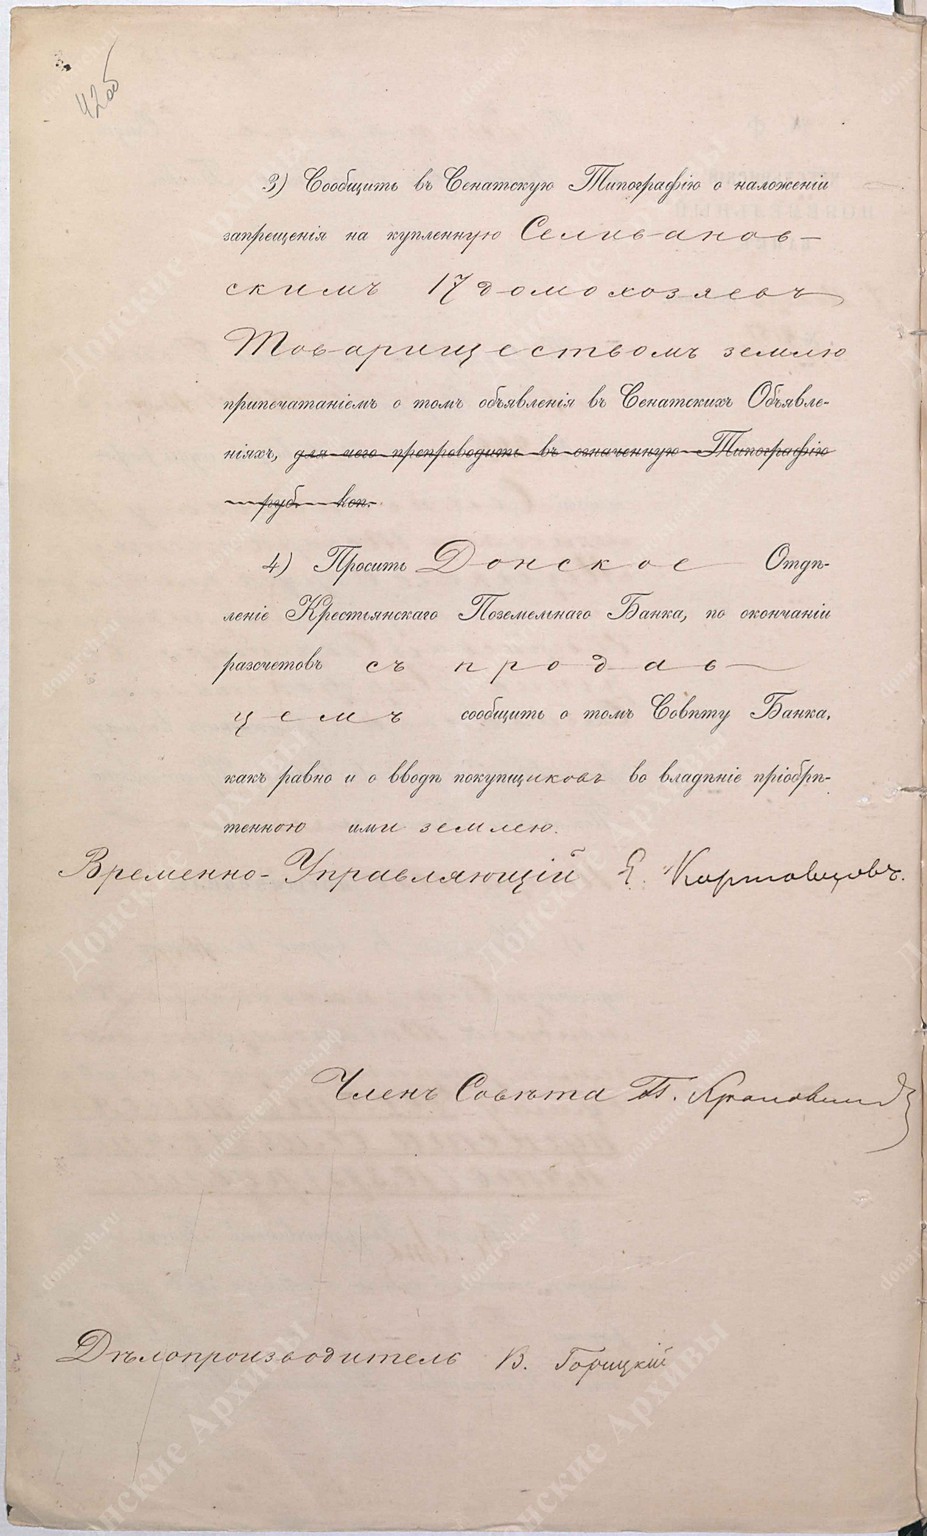 42об
3) Сообщить въ Сенатскую Типографію о наложеніи
запрещенія на купленную Селиванов-
скимъ 17 домохозяевъ
Товариществомъ землю
припечатаніемъ о томъ объявленія въ Сенатскихъ Объявле-
ніяхъ, для чего препроводить въ означенную Типографію
руб. коп.
4) Просить Донское Отдѣ-
леніе Крестьянскаго Поземельнаго Банка, по окончаніи
разсчетовъ съ продав-
цемъ сообщить о томъ Совѣту Банка,
какъ равно и о вводѣ покупщиковъ во владѣніе пріобрѣ-
тенною ими землею.
Временно-Управляющій Е. Картавцовъ.
Членъ Совѣта
Дѣлопроизводитель В. Горицкій